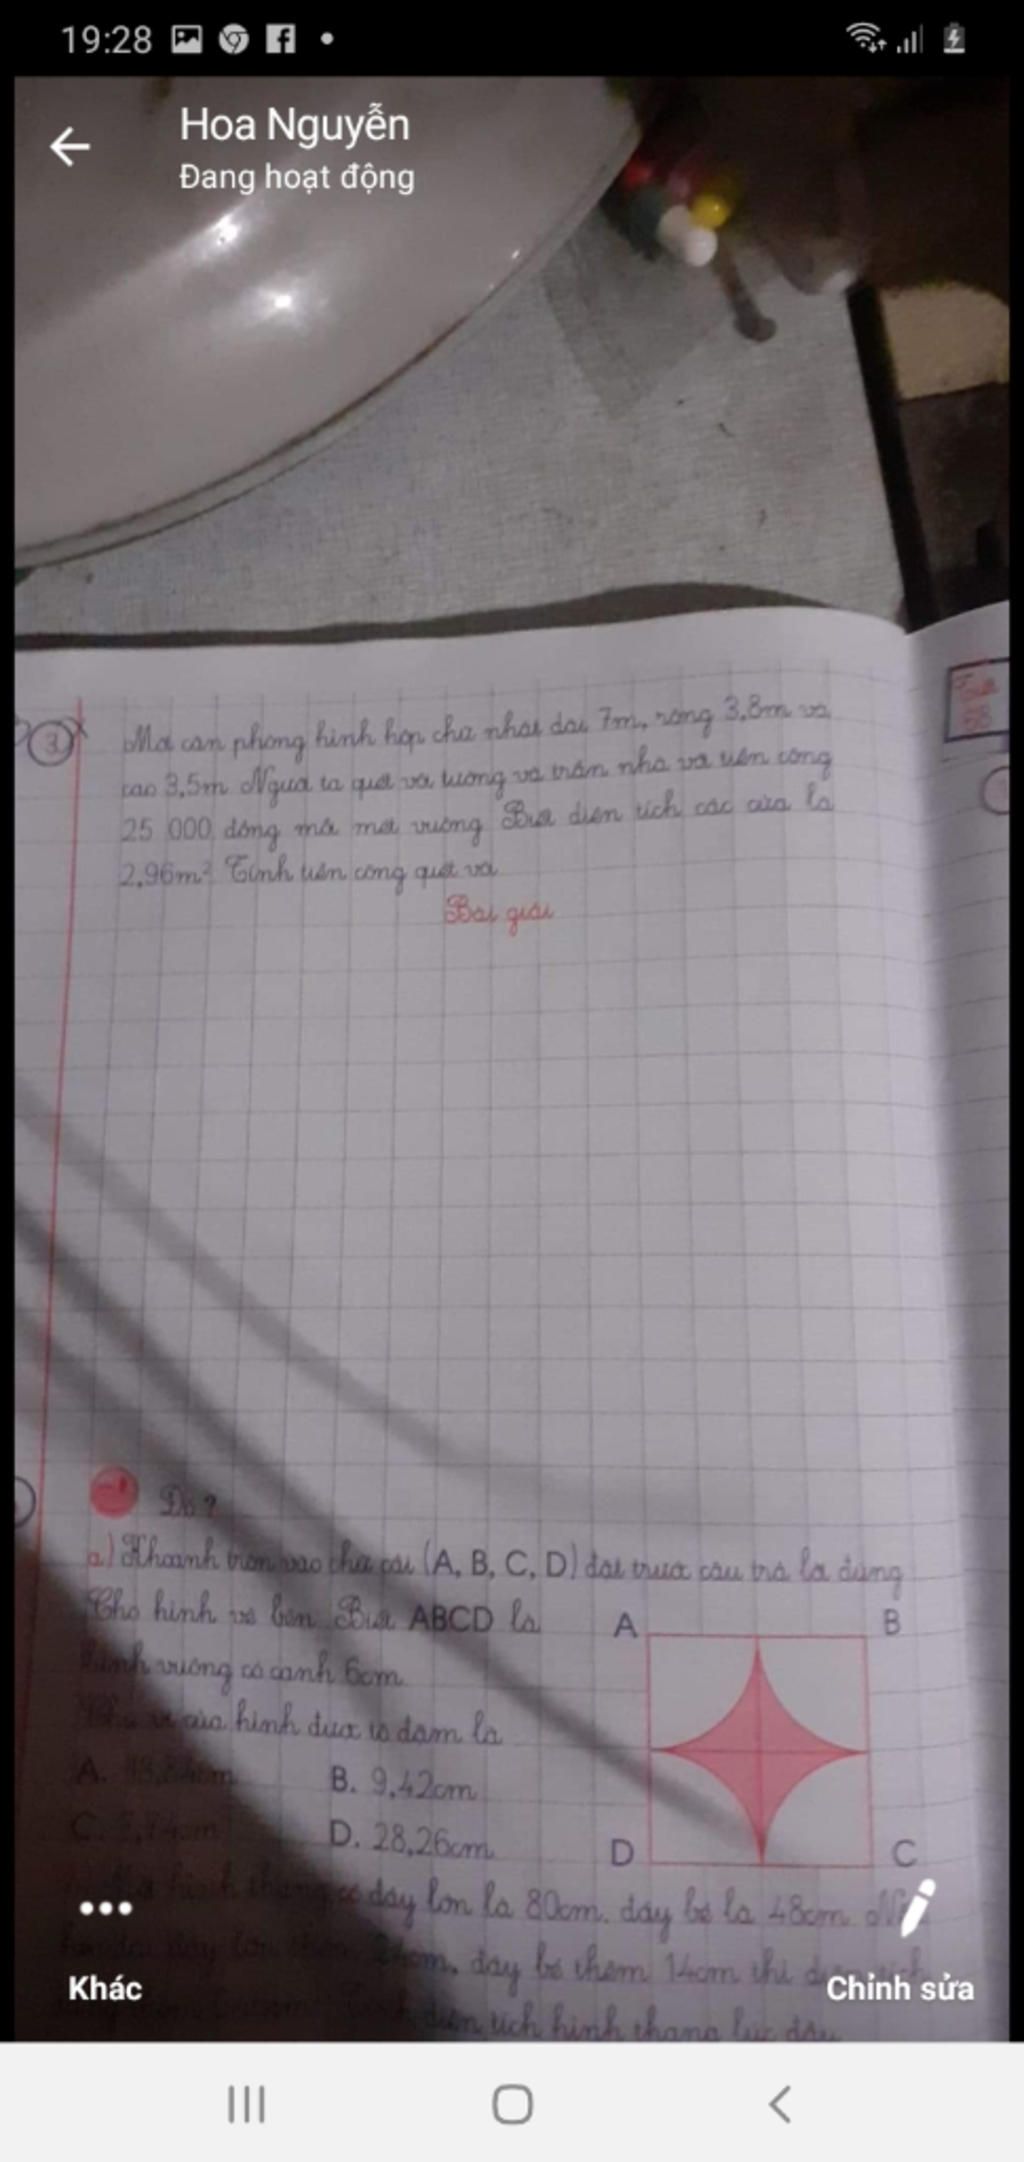 19:28
Hoa Nguyễn
Đang hoạt động
3
Một căn phòng hình hộp chữ nhật dài 7m, rộng 3,8m và
cao 3,5m Người ta quét vôi tường và trần nhà và tiền công
25 000 đồng mỗi mét vuông Biết diện tích các cửa là
2,96m² Tính tiền công quét vôi
Bài giải
Đố?
a) Khoanh tròn vào chữ cái (A, B, C, D) đặt trước câu trả lời đúng
Cho hình vẽ bên Biết ABCD là
hình vuông có cạnh 6cm
Chu vi của hình được tô đậm là
A.
B. 9,42cm
C.
D. 28,26cm
A
B
D
C
hình thang có đáy lớn là 80cm, đáy bé là 48cm
đáy bé thêm 14cm thì diện tích
diện tích hình thang lúc đầu
Khác
Chỉnh sửa